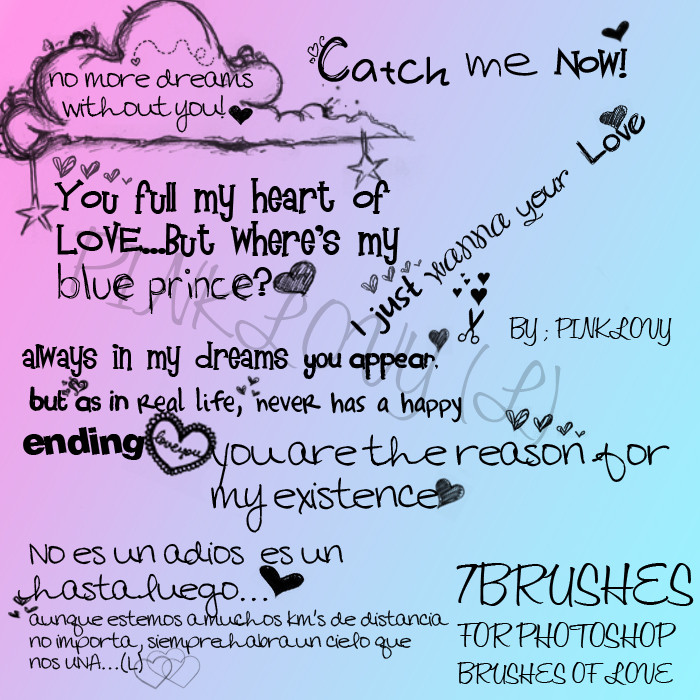 no more dreams
without you!
Catch me Now!
I just wanna your Love
You full my heart of
LOVE...But where's my
blue prince?
PINKLOVY (L)
BY ; PINKLOVY
always in my dreams you appear,
but as in real life, never has a happy
ending
love you
you are the reason for
my existence
No es un adios es un
hasta luego...
aunque estemos a muchos km's de distancia
no importa, siempre habra un cielo que
nos UNA...(L)
7BRUSHES
FOR PHOTOSHOP
BRUSHES OF LOVE